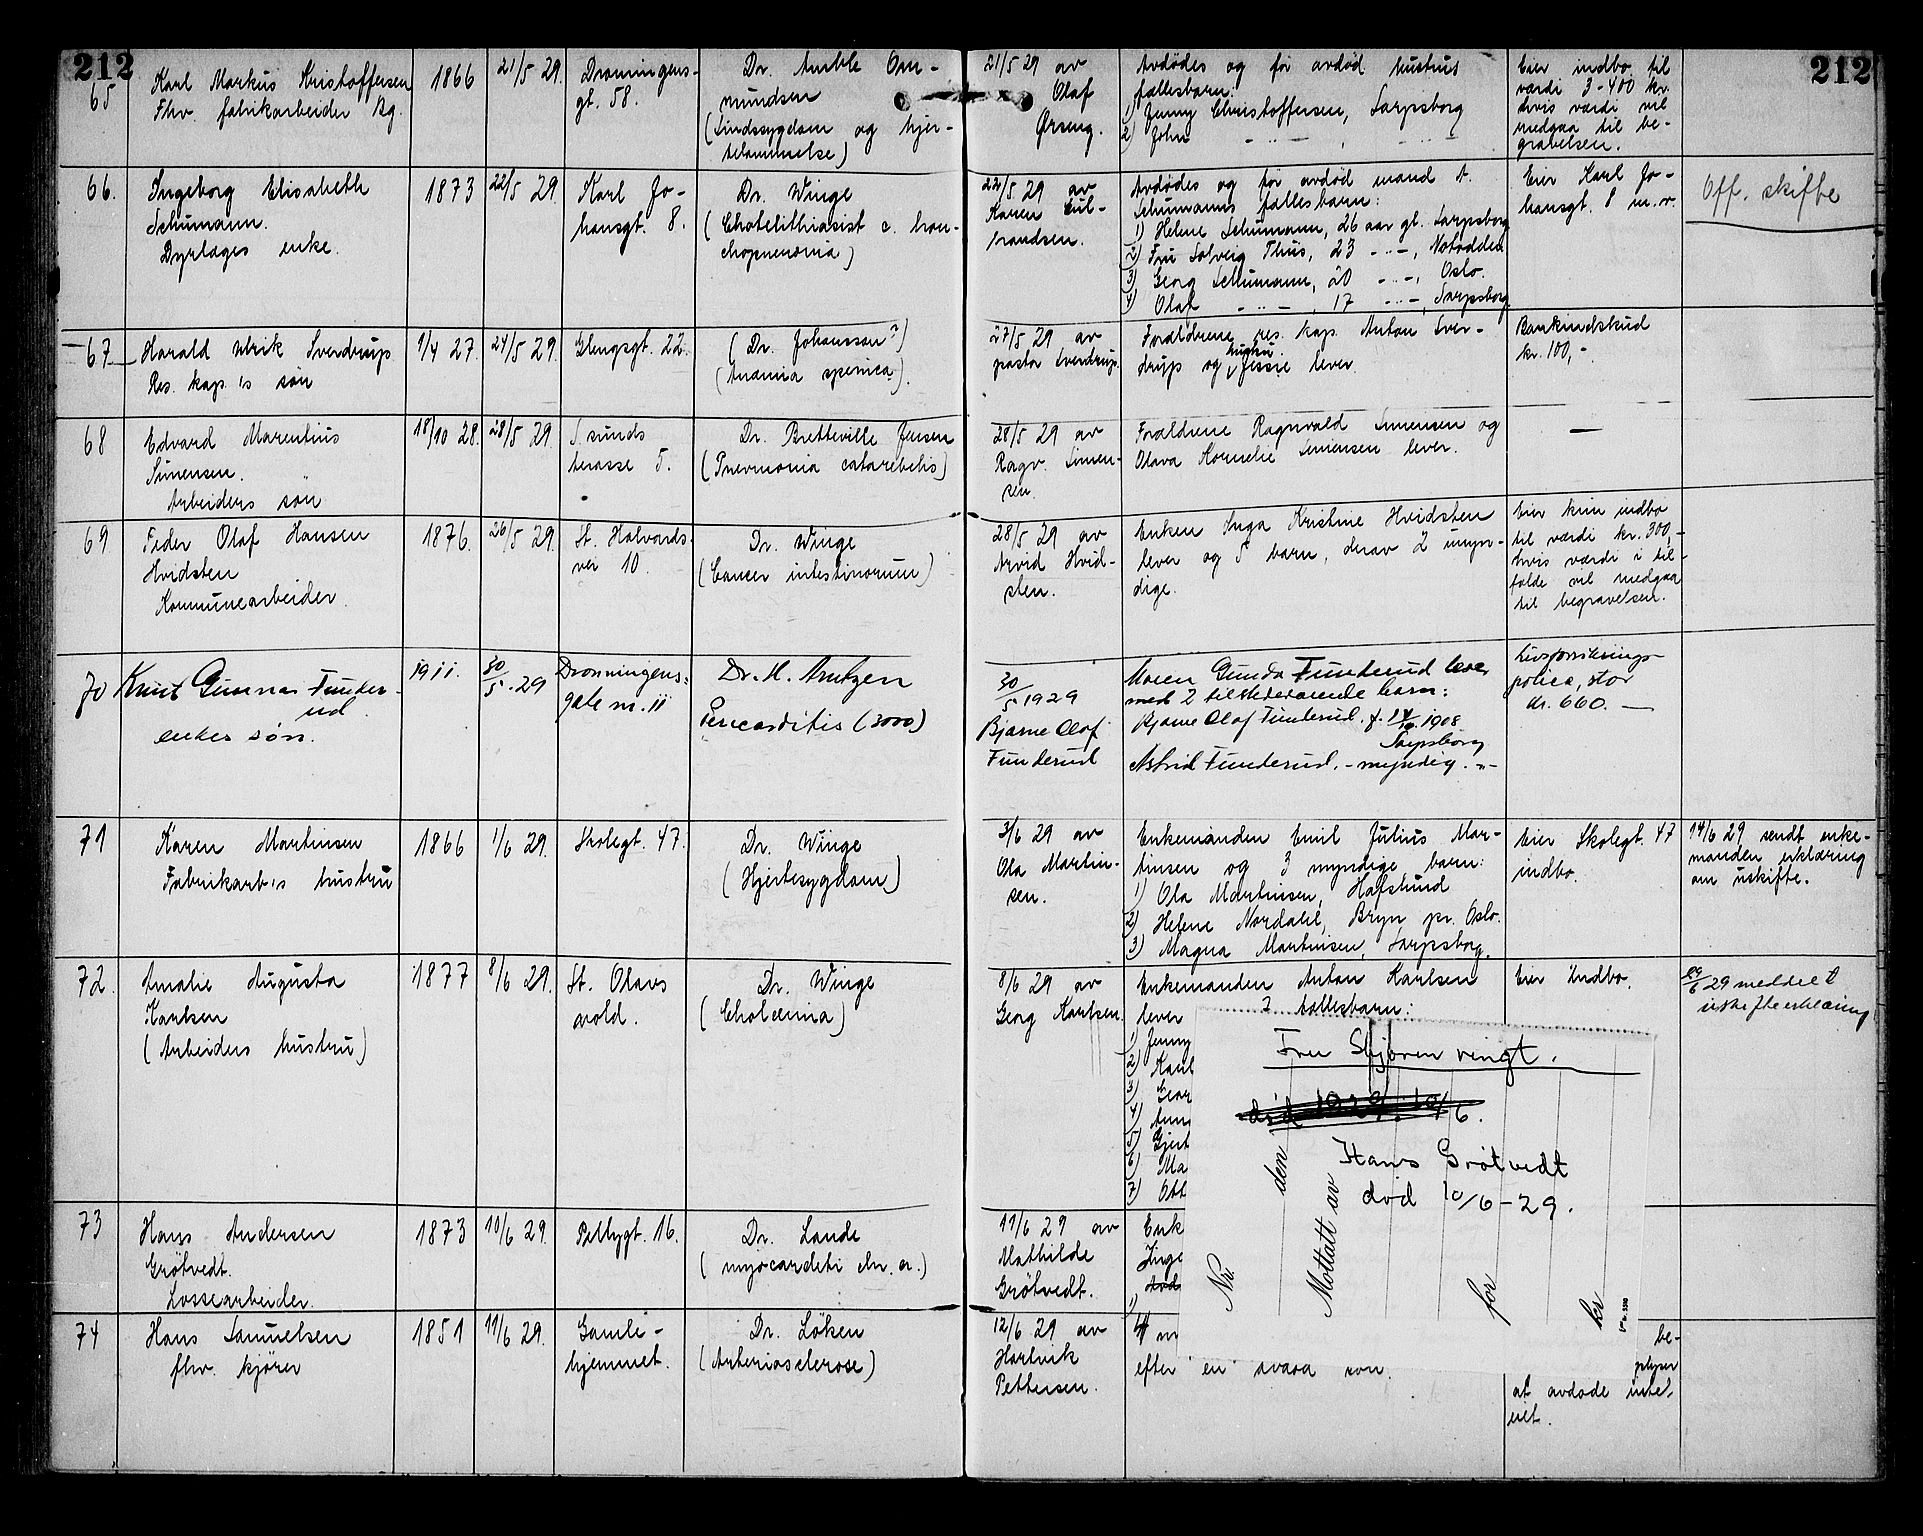 212
65
Karl Markus Kristoffersen
Fhv. fabrikarbeider Bg.
1866
21/5 29.
Dronningens-
gt. 58.
Dr. Amble Om-
mundsen
(Sindssygdom og hjer-
telammelse)
21/5 29 av
Olaf
Ørseng.
Avdødes og før avdød hustrus
fællesbarn:
1) Jenny Christoffersen, Sarpsborg
2) John - " - , - " -
Eier indbo til
værdi 3-400 kr.
hvis værdi vil
medgaa til be-
gravelsen.
212
66.
Ingeborg Elisabeth
Schumann.
Dyrlæges enke.
1873
22/5 29.
Karl Jo-
hansgt. 8.
Dr. Winge
(Cholelithiasist c. bron-
chopneumonia)
22/5 29 av
Karen Gul-
brandsen.
Avdødes og før avdød mand A.
Schumanns fællesbarn:
1) Helene Schumann, 26 aar gl. Sarpsborg
2) Fru Solveig Thuis, 23 - " -, Notodden
3) Georg Schumann, 20 - " -, Oslo.
4) Olaf - " - , 17 - " -, Sarpsborg.
Eier Karl Jo-
hansgt. 8 m.v.
Off. skifte
67
Harald Ulrik Sverdrup
Res. kap.'s søn
1/4 27.
24/5 29.
Glengsgt. 22.
(Dr. Johansson?)
(Anæmia spenica).
27/5 29 av
pastor Sverdrup.
Forældrene, res. kap. Anton Sver-
drup og hustru Jessie lever.
Bankindskud
kr. 100,-
68
Edvard Marentius
Simensen.
Arbeiders søn
18/10 28.
28/5 29.
S. sunds
terasse 5.
Dr. Bretteville Jensen
(Pnevmonia catarrhalis)
28/5 29 av
Ragv. Simen-
sen.
Forældrene Ragnvald Simensen og
Olava Kornelie Simensen lever.
—
69
Peder Olaf Hansen
Hvidsten
Kommunearbeider.
1876.
26/5 29.
St. Halvards-
vei 10.
Dr. Winge
(Cancer intestinorum)
28/5 29 av
Arvid Hvid-
sten.
Enken Inga Kristine Hvidsten
lever og 5 barn, derav 2 umyn-
dige.
Eier kun indbo
til værdi kr. 300,-
hvis værdi i til-
fælde vil medgaa
til begravelsen.
70
Knut Gunnar Funder-
ud.
enkes søn.
1911.
30/5. 29
Dronningens:
gate nr. 11
Dr. H. Arntzen
Pericarditis (3000)
30/5 1929
Bjarne Olaf
Funderud
Moren Gunda Funderud lever
med 2 tilstedeværende barn:
Bjarne Olaf Funderud. f. 1908
Sarpsborg
Astrid Funderud. - myndig. - " -
Livsforsikrings-
police, stor
kr. 660. —
71
Karen Martinsen
Fabrikarb's hustru
1866
1/6 29.
Skolegt. 47.
Dr. Winge
(Hjertesygdom)
3/6 29 av
Ola Martin-
sen.
Enkemanden Emil Julius Mar-
tinsen og 3 myndige barn:
1) Ola Martinsen, Hafslund
2) Helene Nordahl, Bryn pr. Oslo.
3) Magna Martinsen, Sarpsborg.
Eier Skolegt. 47
indbo.
14/6 29 sendt enke-
manden erklæring
om uskifte.
72.
Amalie Augusta
Karlsen
(Arbeiders hustru)
1877
8/6 29.
St. Olavs
vold.
Dr. Winge
(Cholæmia)
8/6 29 av
Georg Karlsen.
Enkemanden Anton Karlsen
lever 7 fællesbarn:
1) Jenny
2) Karl
3) Geor
4) Ann
5) Gjert
6) Ma
7) Ott
Eier Indbo.
29/6 29 meddelt
uskifteerklæring
Fru Skjørenvingt.
død 1929. 10/6.
Hans Grøtvedt
død 10/6-29.
Nr.
den
Mottatt av
for
kr
73
Hans Andersen
Grøtvedt.
Lossearbeider.
1873
10/6 29.
Pellygt. 16.
Dr. Lande
(myocarditi chr. a.)
11/6 29 av
Mathilde
Grøtvedt.
Enk
Inge
Avd
1)
74
Hans Samuelsen
fhv. kjører
1851
11/6 29.
Gamle-
hjemmet.
Dr. Løken
(Arteriosclerose)
12/6 29 av
Hartvik
Pettersen.
efter en svara søn.
be-
at avdøde intet
eiet.